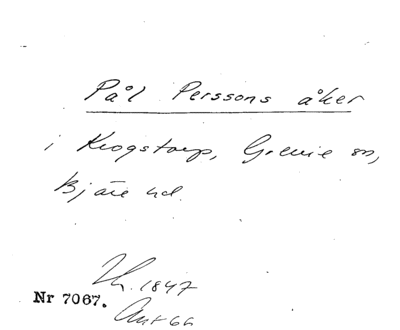 Pål Perssons åker
i Krogstorp, Grevie sn,
Bjäre hd.
Th. 1847
Nr 7067.